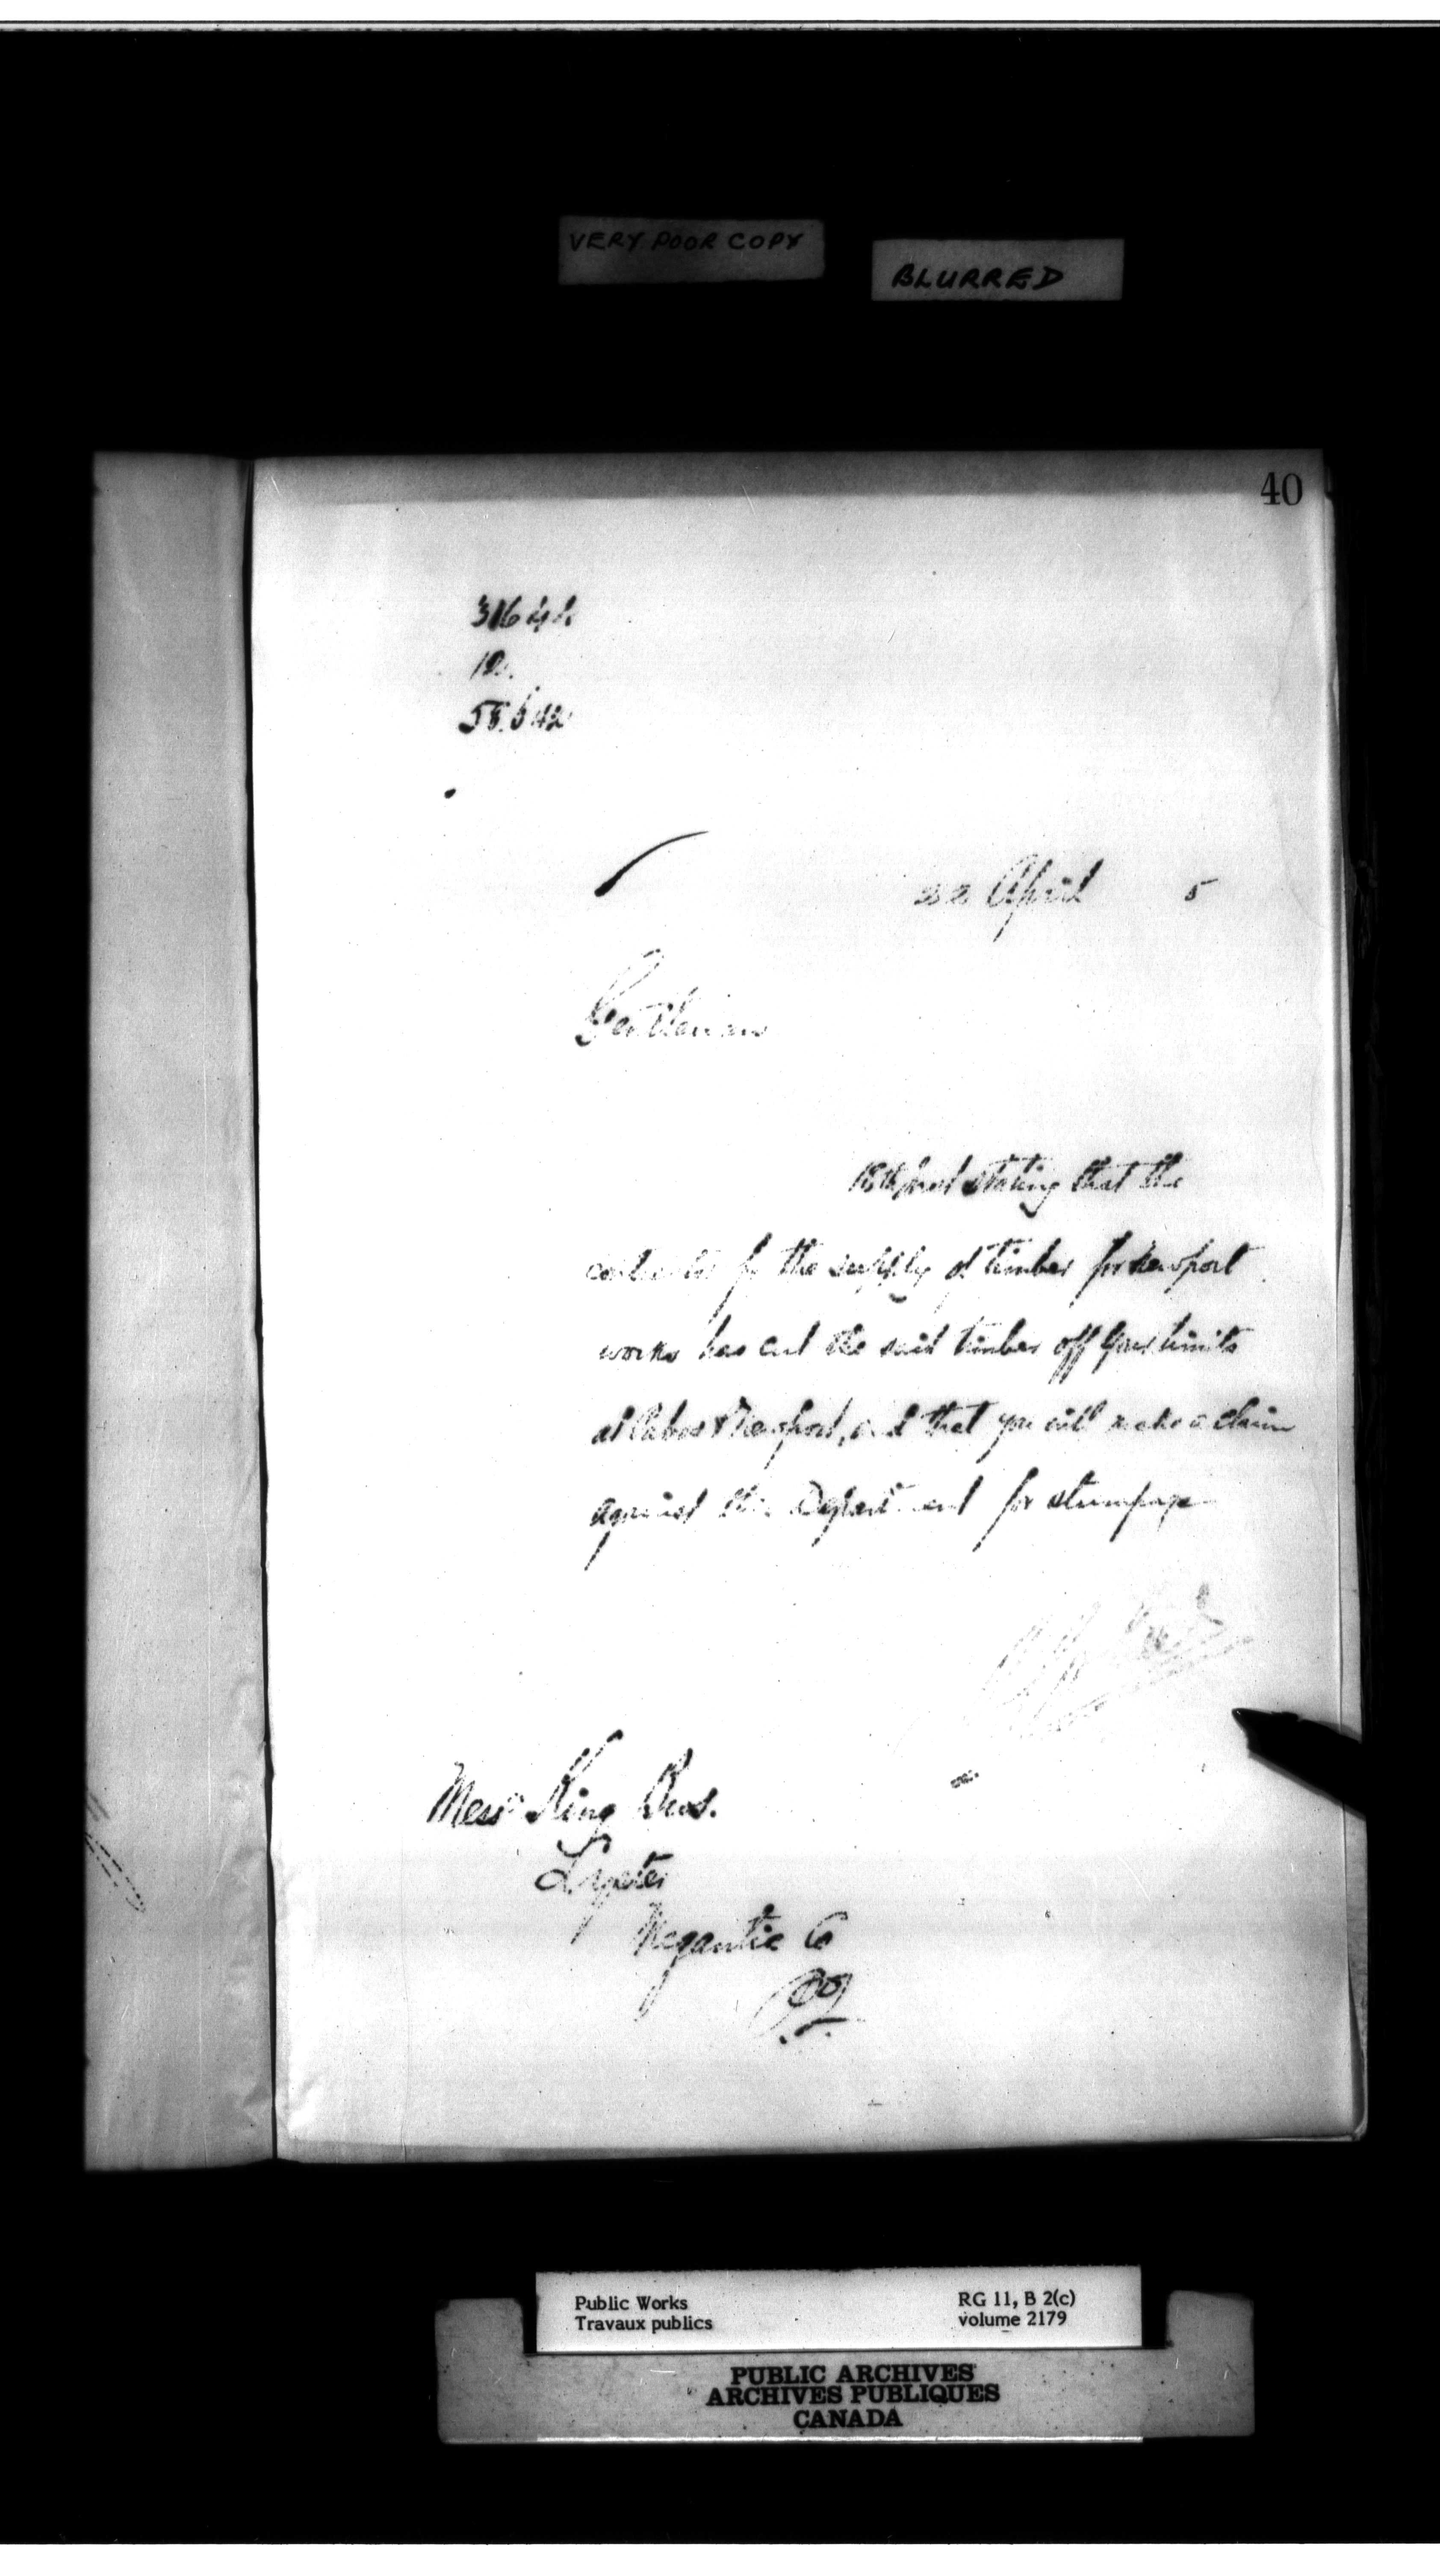 VERY POOR COPY
BLURRED
40
22 April 5
Gentlemen
18th inst stating that the
contractor for the supply of timber for Newport
works has cut the said timber off your limits
at Pabos & Newport, and that you will make a claim
against this Department for stumpage
Messrs King Bros.
Lyster
Megantic Co
Public Works
Travaux publics
RG 11, B 2(c)
volume 2179
PUBLIC ARCHIVES
ARCHIVES PUBLIQUES
CANADA